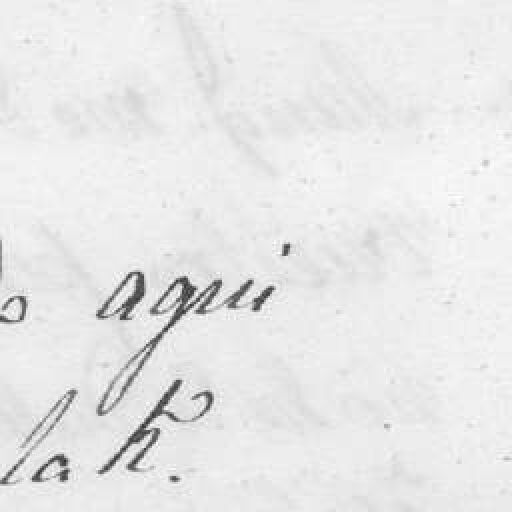 agui
lak.